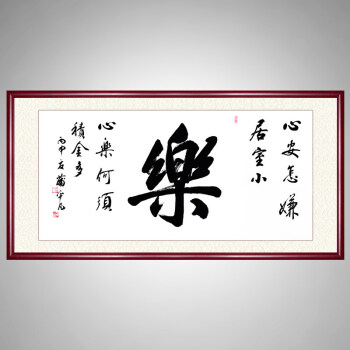 心安怎嫌
居室小
樂
心樂何須
積金多
丙申